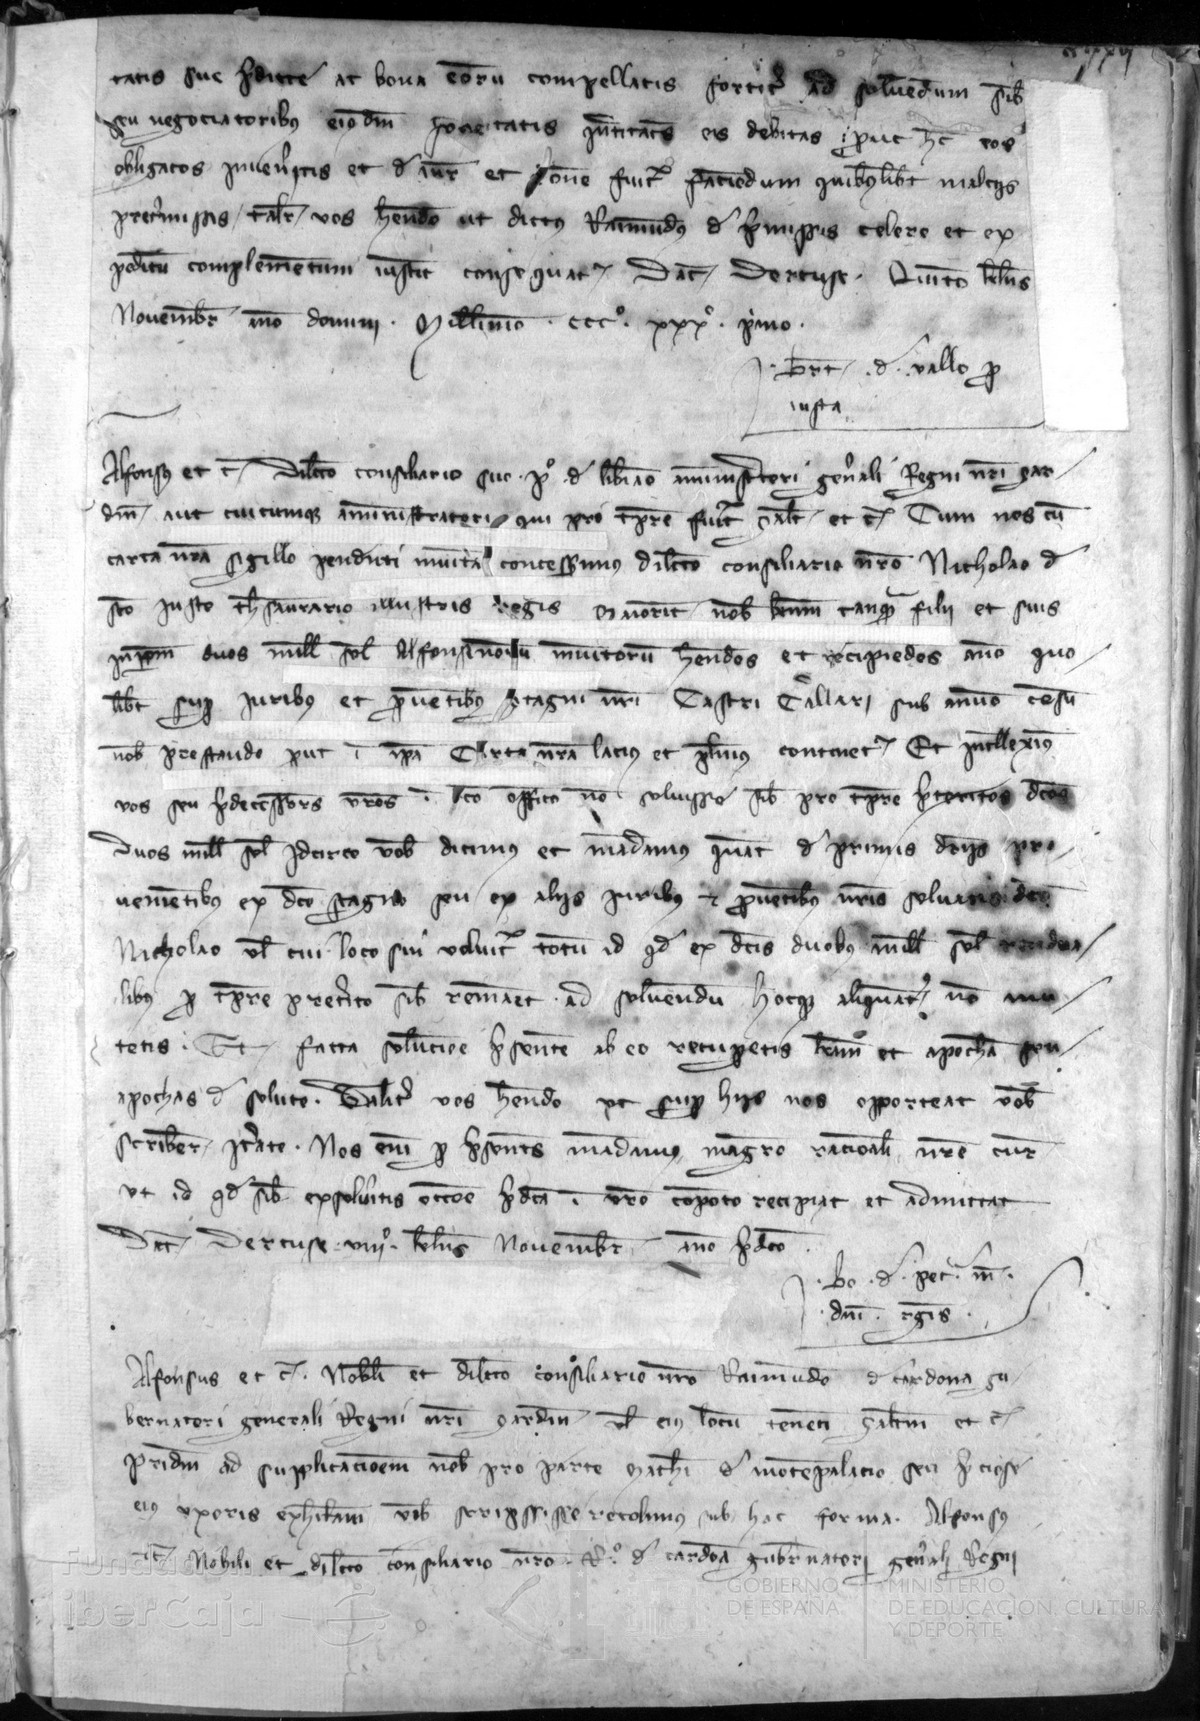 tatis sue pdicte ac bona eoru compellatis fortit ad soluendum sib
seu negociatoribus eiusdm societatis quantitates eis debitas prout hc eos
obligatos inuenitis et d aur et ratione fuit faciendum quibuslibet maliciis
pretermissis talr vos hendo ut dictus Raimundus d pmissis celere et ex
peditu complementum iusticie consequatr Dat Dertuse Quinto klns
Nouembr ano domini Millimo ccco xxxo pimo
Brt d vallo p
iusta
Alfonsus et c Dilcto consiliario suo po d libiano amministratori genali Regni nri Sar
din aut cuicumque aministratori qui pro tpre fuit salt et c Cum nos cu
carta nra sigillo pendenti munita concessimus dilcto consiliario nro Nicholao d
sco iusto thesaurario illustris regis Maioric nob karissimi tanq filii et suis
inppm duos mill sol Alfonsinoru minutoru hendos et recipiedos ano quo
libt sup juribus et puetibus stagni nri Castri Callari sub annuo cesu
nob prestando put i ipa Carta nra lacius et plenius continetr Et intelleximus
vos seu pdecessors vros i dco officio no soluisse sib pro tpre preteritos dcos
duos mill sol Idcirco vob dicimus et madamus quat d primis denariis pro
uenietibus ex dco stagno seu ex aliis juribus et puetibus nris soluatis dco
Nicholao vl cui loco sui voluit totu id qd ex dcis duobus mill sol rendua
libus p tpre preterito sib remaet ad soluendu hocque aliquatr no mu
tetis Et facta solucioe psente ab eo recuperetis tram et apocha seu
apochas d soluto Talit vos hendo ut sup hijs nos opporteat vob
scriber iterato Nos eni p psentes madamus magro racionali nre cur
ut id qd sib exsoluitis occoe pdca i vro copoto recipiat et admittat
Dat Dertuse viiio klns Nouembr ano pdco
Bo d pet m
dni rgis
Alfonsus et c Nobili et dilcto consiliario nro Raimundo d cardona gu
bernatori generali Regni nri Sardin vl eius locu teneti saltm et c
pridm ad supplicacioem nob pro parte Mathi d motepalacio seu preciose
eius uxoris exhibitam vob scripsisse recolimus sub hac forma Alfonsus
et c Nobili et dilcto consiliario nro Ro d cardoa gubernatori genali Regni
Fundación
iberCaja
GOBIERNO
DE ESPAÑA
MINISTERIO
DE EDUCACIÓN, CULTURA
Y DEPORTE